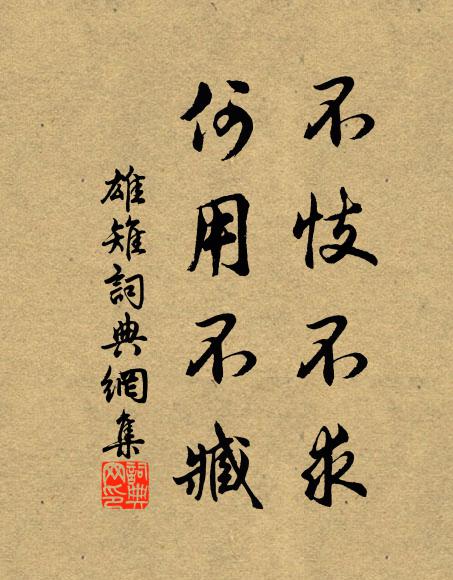 不忮不求
何用不臧
雄雉詞典網集
詞典
网印